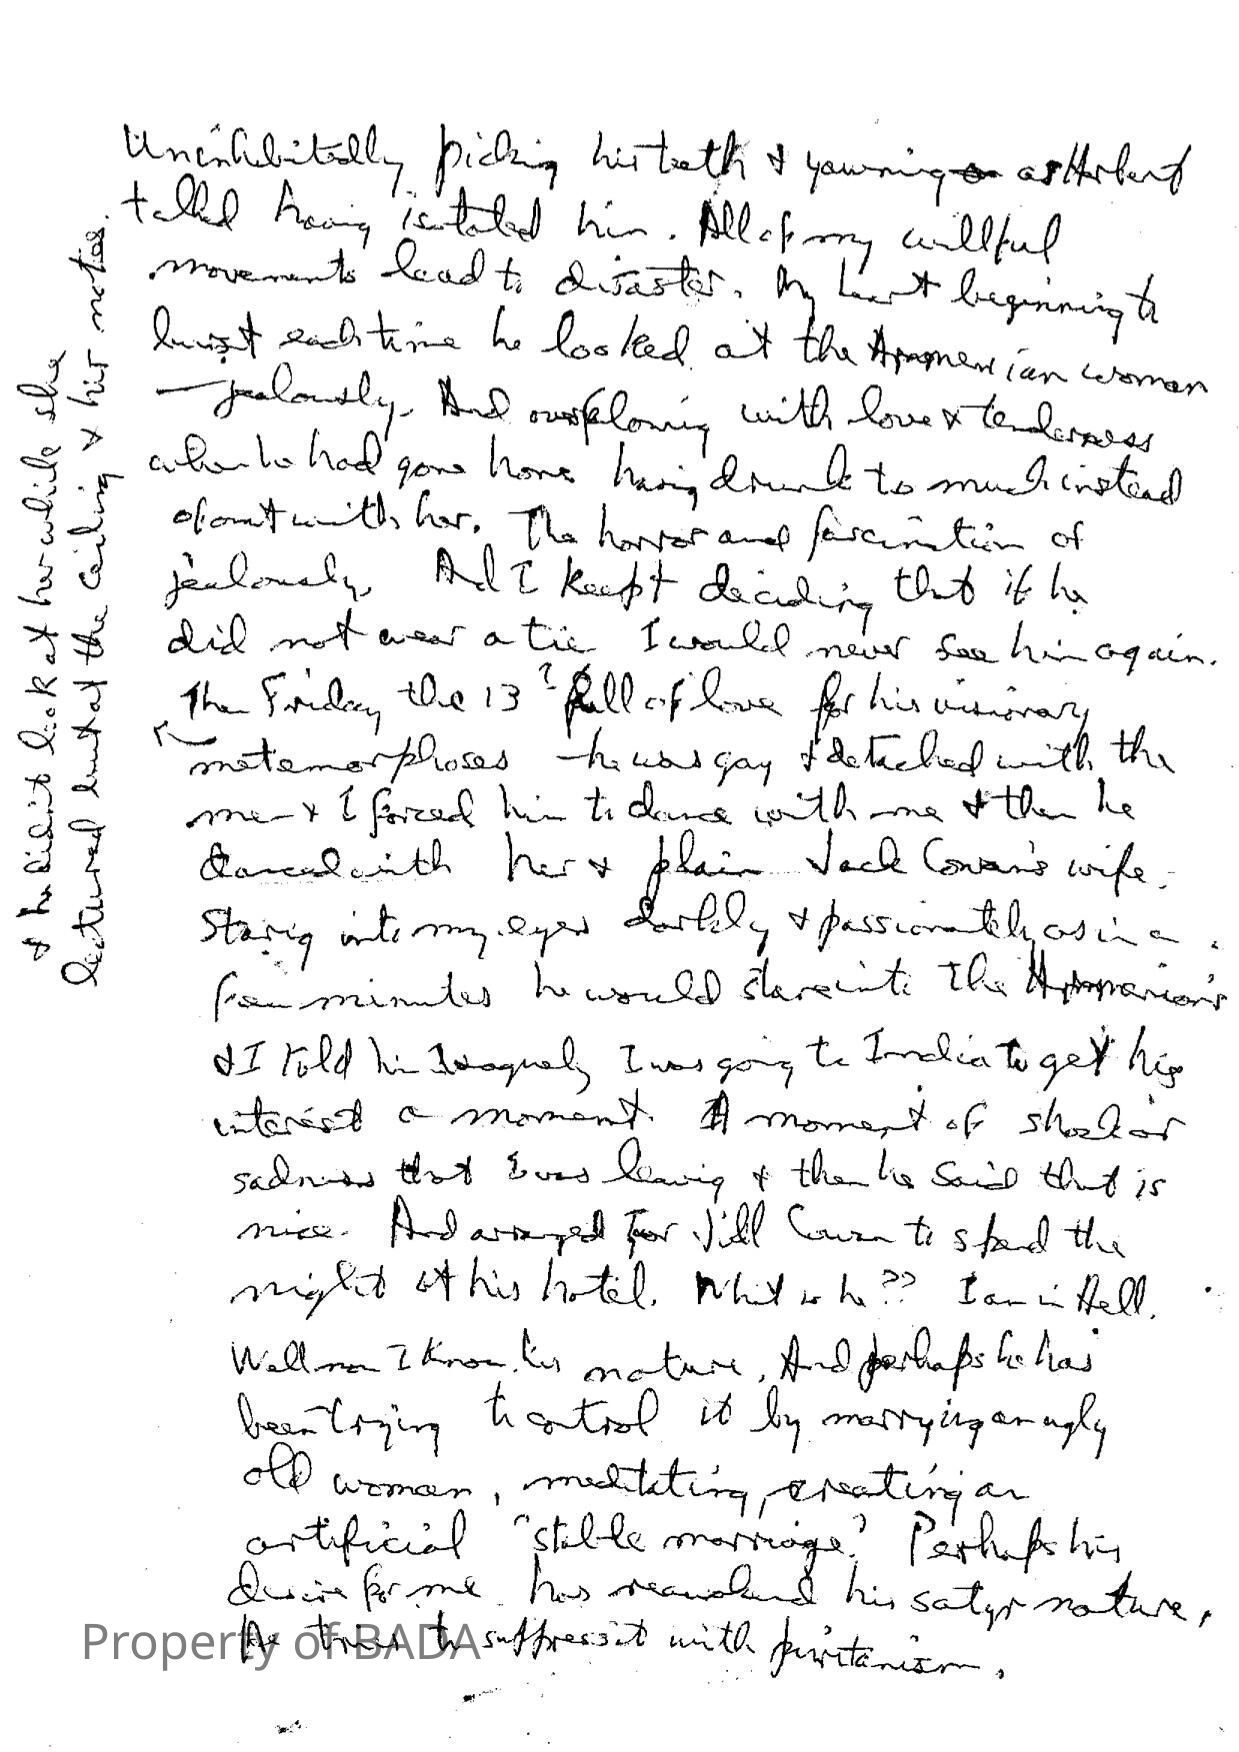 Uninhibitedly picking his teeth & yawning as Herbert
talked having isolated him. All of my willful
movements lead to disaster. My heart beginning to
burst each time he looked at the Armenian woman
— jealously. And overflowing with love & tenderness
when he had gone home having drunk to much instead
of out with her. The horror and fascination of
jealously. And I keept deciding that if he
did not wear a tie I would never see him again.
Then Friday the 13th full of love for his visionary
metamorphoses — he was gay & detached with the
me — & I forced him to dance with me & then he
danced with her & plain Jack Cowan's wife.
Staring into my eyes darkly & passionately as in a
few minutes he would stare into the Armenian's
& I told him vaguely I was going to India to get his
interest a moment. A moment of shock or
sadness that I was leaving & then he said that is
nice. And arranged for Jill Cowan to spend the
night at his hotel. What is he?? I am in Hell.
Well now I know his nature. And perhaps he has
been trying to control it by marrying an ugly
old woman, meditating, creating an
artificial "stable marriage". Perhaps his
desire for me has reawakened his satyr nature,
he tries to suppress it with puritanism.
& he didn't look at her while she
lectured but at the ceiling & his notes.
Property of BADA